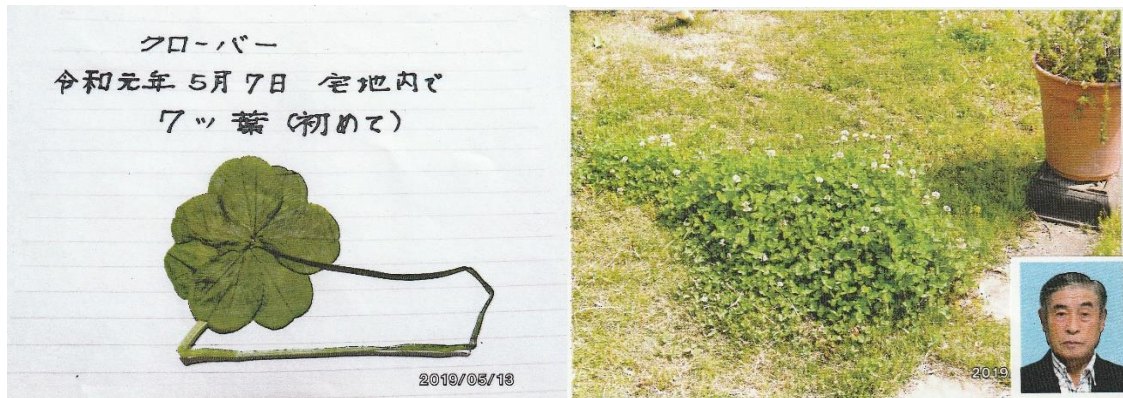 クローバー
令和元年 5月7日 宅地内で
7ッ葉(初めて)
2019/05/13
2019